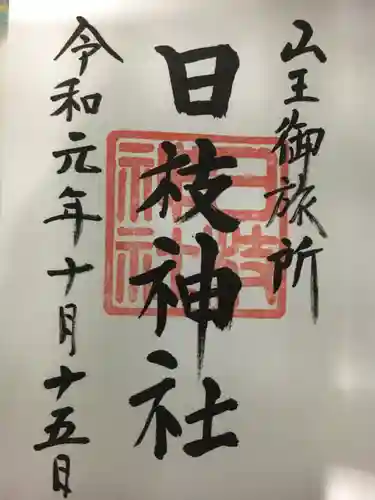 山王御旅所
日枝神社
日枝
神社
令和元年十月十五日